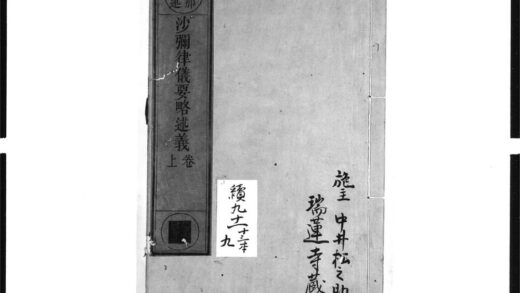 施主 中井松之助
瑞蓮寺藏
續九
九
沙彌律儀要略述義
卷上